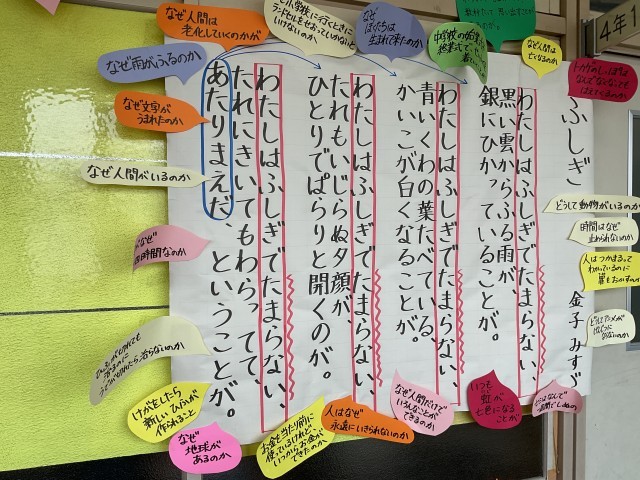 ふしぎ
金子 みすゞ
わたしはふしぎでたまらない、
黒い雲からふる雨が、
銀にひかっていることが。
わたしはふしぎでたまらない、
青いくわの葉たべている、
かいこが白くなることが。
わたしはふしぎでたまらない、
たれもいじらぬ夕顔が
ひとりでぱらりと開くのが。
わたしはふしぎでたまらない、
たれにきいてもわらってて、
あたりまえだ、ということが。
4年
なぜ人間は
亡くなるのか
なぜ
ぼくたちは
生まれて来たのか
小学生に行くときに
ランドセルをせおっていかないと
いけないのか
なぜ人間は
老化していくのかが
なぜ雨がふるのか
なぜ文字が
うまれたのか
なぜ人間がいるのか
なぜ
時間なのか
けがをしたら
新しいひふが
作られること
なぜ
地球が
あるのか
お金を当たり前に
使っているけれど
いつからお金が
できたのか
人はなぜ
永遠にいきられないのか
なぜ人間だけで
いろんなことが
できるのか
いつも
虹が
七色になる
ことが
どうして動物がいるのか
時間はなぜ
止められないのか
人はつかまるって
わかっているのに
罪をおかすのか